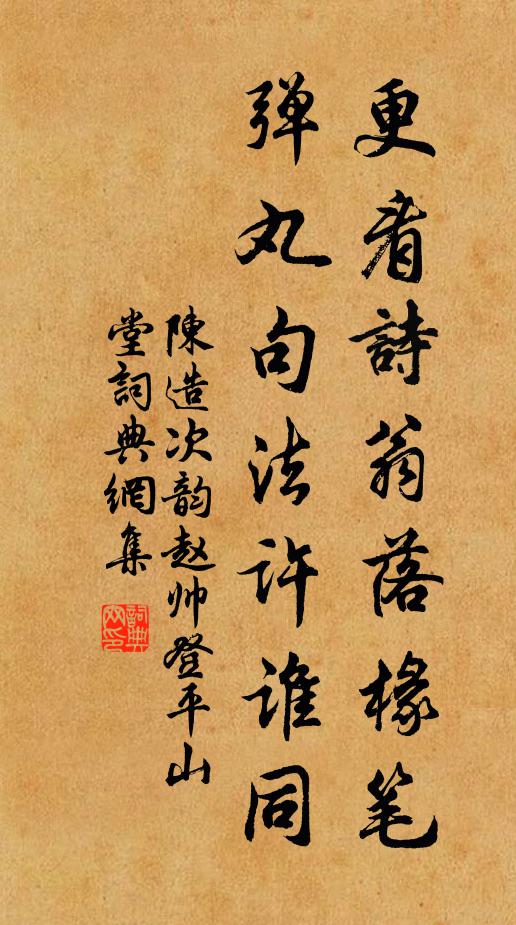 更看詩翁落椽笔
弹丸句法许谁同
陳造次韵赵帅登平山
堂詞典網集
詞典网印